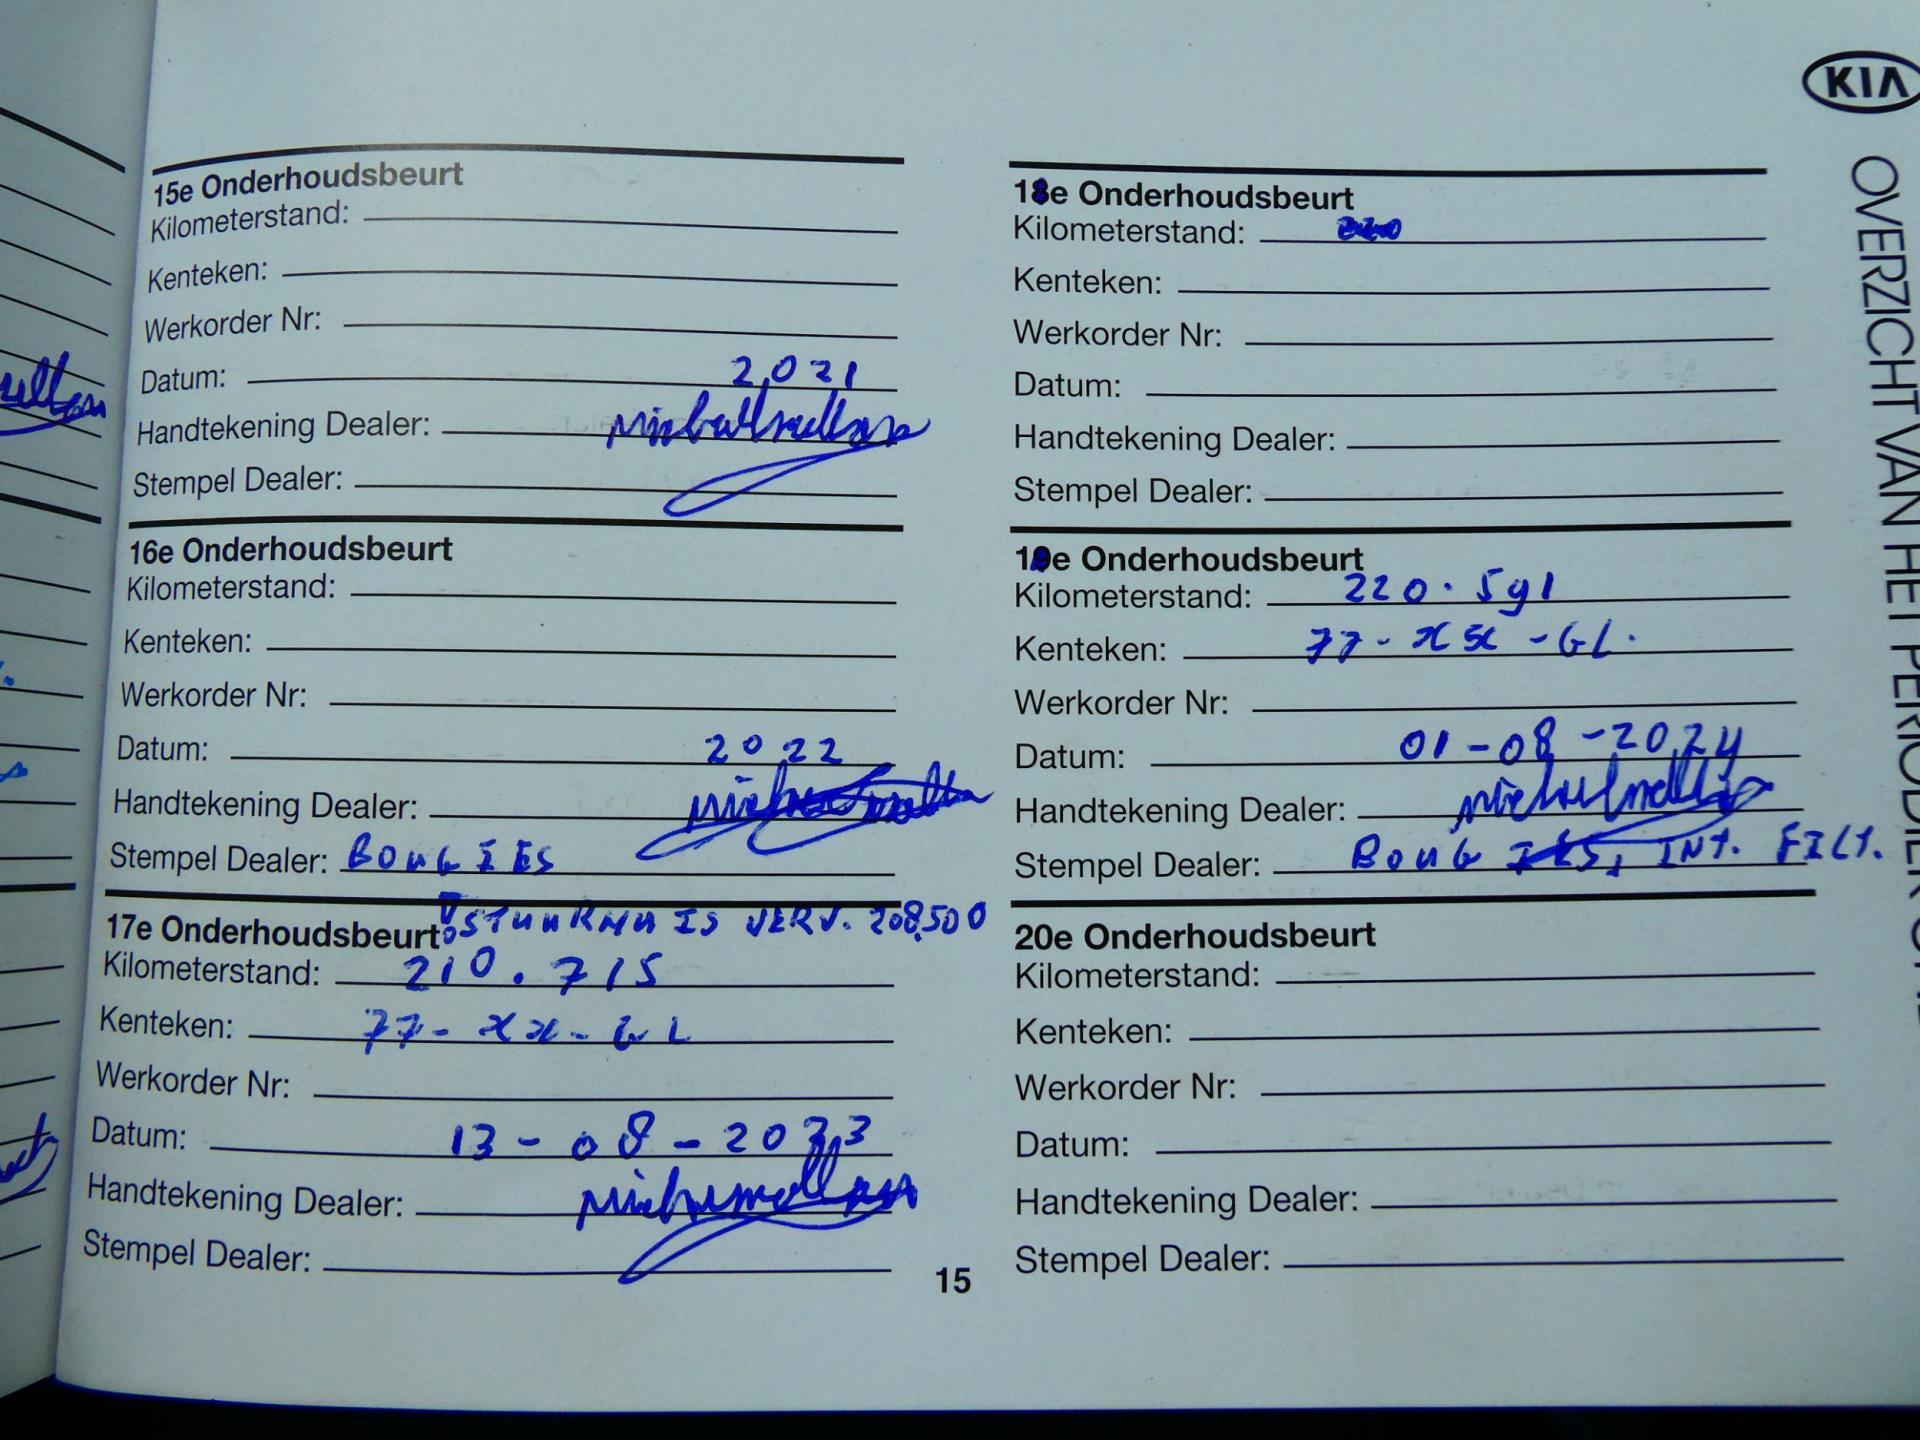 KIA
OVERZICHT VAN HET PERIODIEK
15e Onderhoudsbeurt
Kilometerstand:
Kenteken:
Werkorder Nr:
Datum: 2021
Handtekening Dealer:
Stempel Dealer:
16e Onderhoudsbeurt
Kilometerstand:
Kenteken:
Werkorder Nr:
Datum: 2022
Handtekening Dealer:
Stempel Dealer: BOUGIES
17e Onderhoudsbeurt IS VERV. 208,500
Kilometerstand: 210.715
Kenteken: 77-XX-GL
Werkorder Nr:
Datum: 13-08-2023
Handtekening Dealer:
Stempel Dealer:
18e Onderhoudsbeurt
Kilometerstand:
Kenteken:
Werkorder Nr:
Datum:
Handtekening Dealer:
Stempel Dealer:
19e Onderhoudsbeurt
Kilometerstand: 220.591
Kenteken: 77-XX-GL.
Werkorder Nr:
Datum: 01-08-2024
Handtekening Dealer:
Stempel Dealer: BOUGIES, INT. FILT.
20e Onderhoudsbeurt
Kilometerstand:
Kenteken:
Werkorder Nr:
Datum:
Handtekening Dealer:
Stempel Dealer:
15